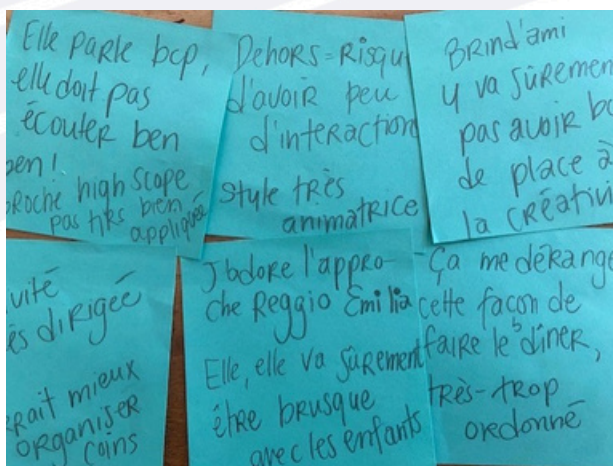 Elle parle bcp,
elle doit pas
écouter ben
ben!
proche high scope
pas très bien
appliquée
Dehors = Risqu
d'avoir peu
d'interaction
style très
animatrice
Brind'ami
y va sûremen
pas avoir b
de place à
la créativi
vité
ès dirigée
rrait mieux
organiser
coins
J'adore l'appro-
che Reggio Emilia
Elle, elle va sûrement
être brusque
avec les enfants
Ça me dérange
cette façon de
faire le dîner,
très-trop
ordonné